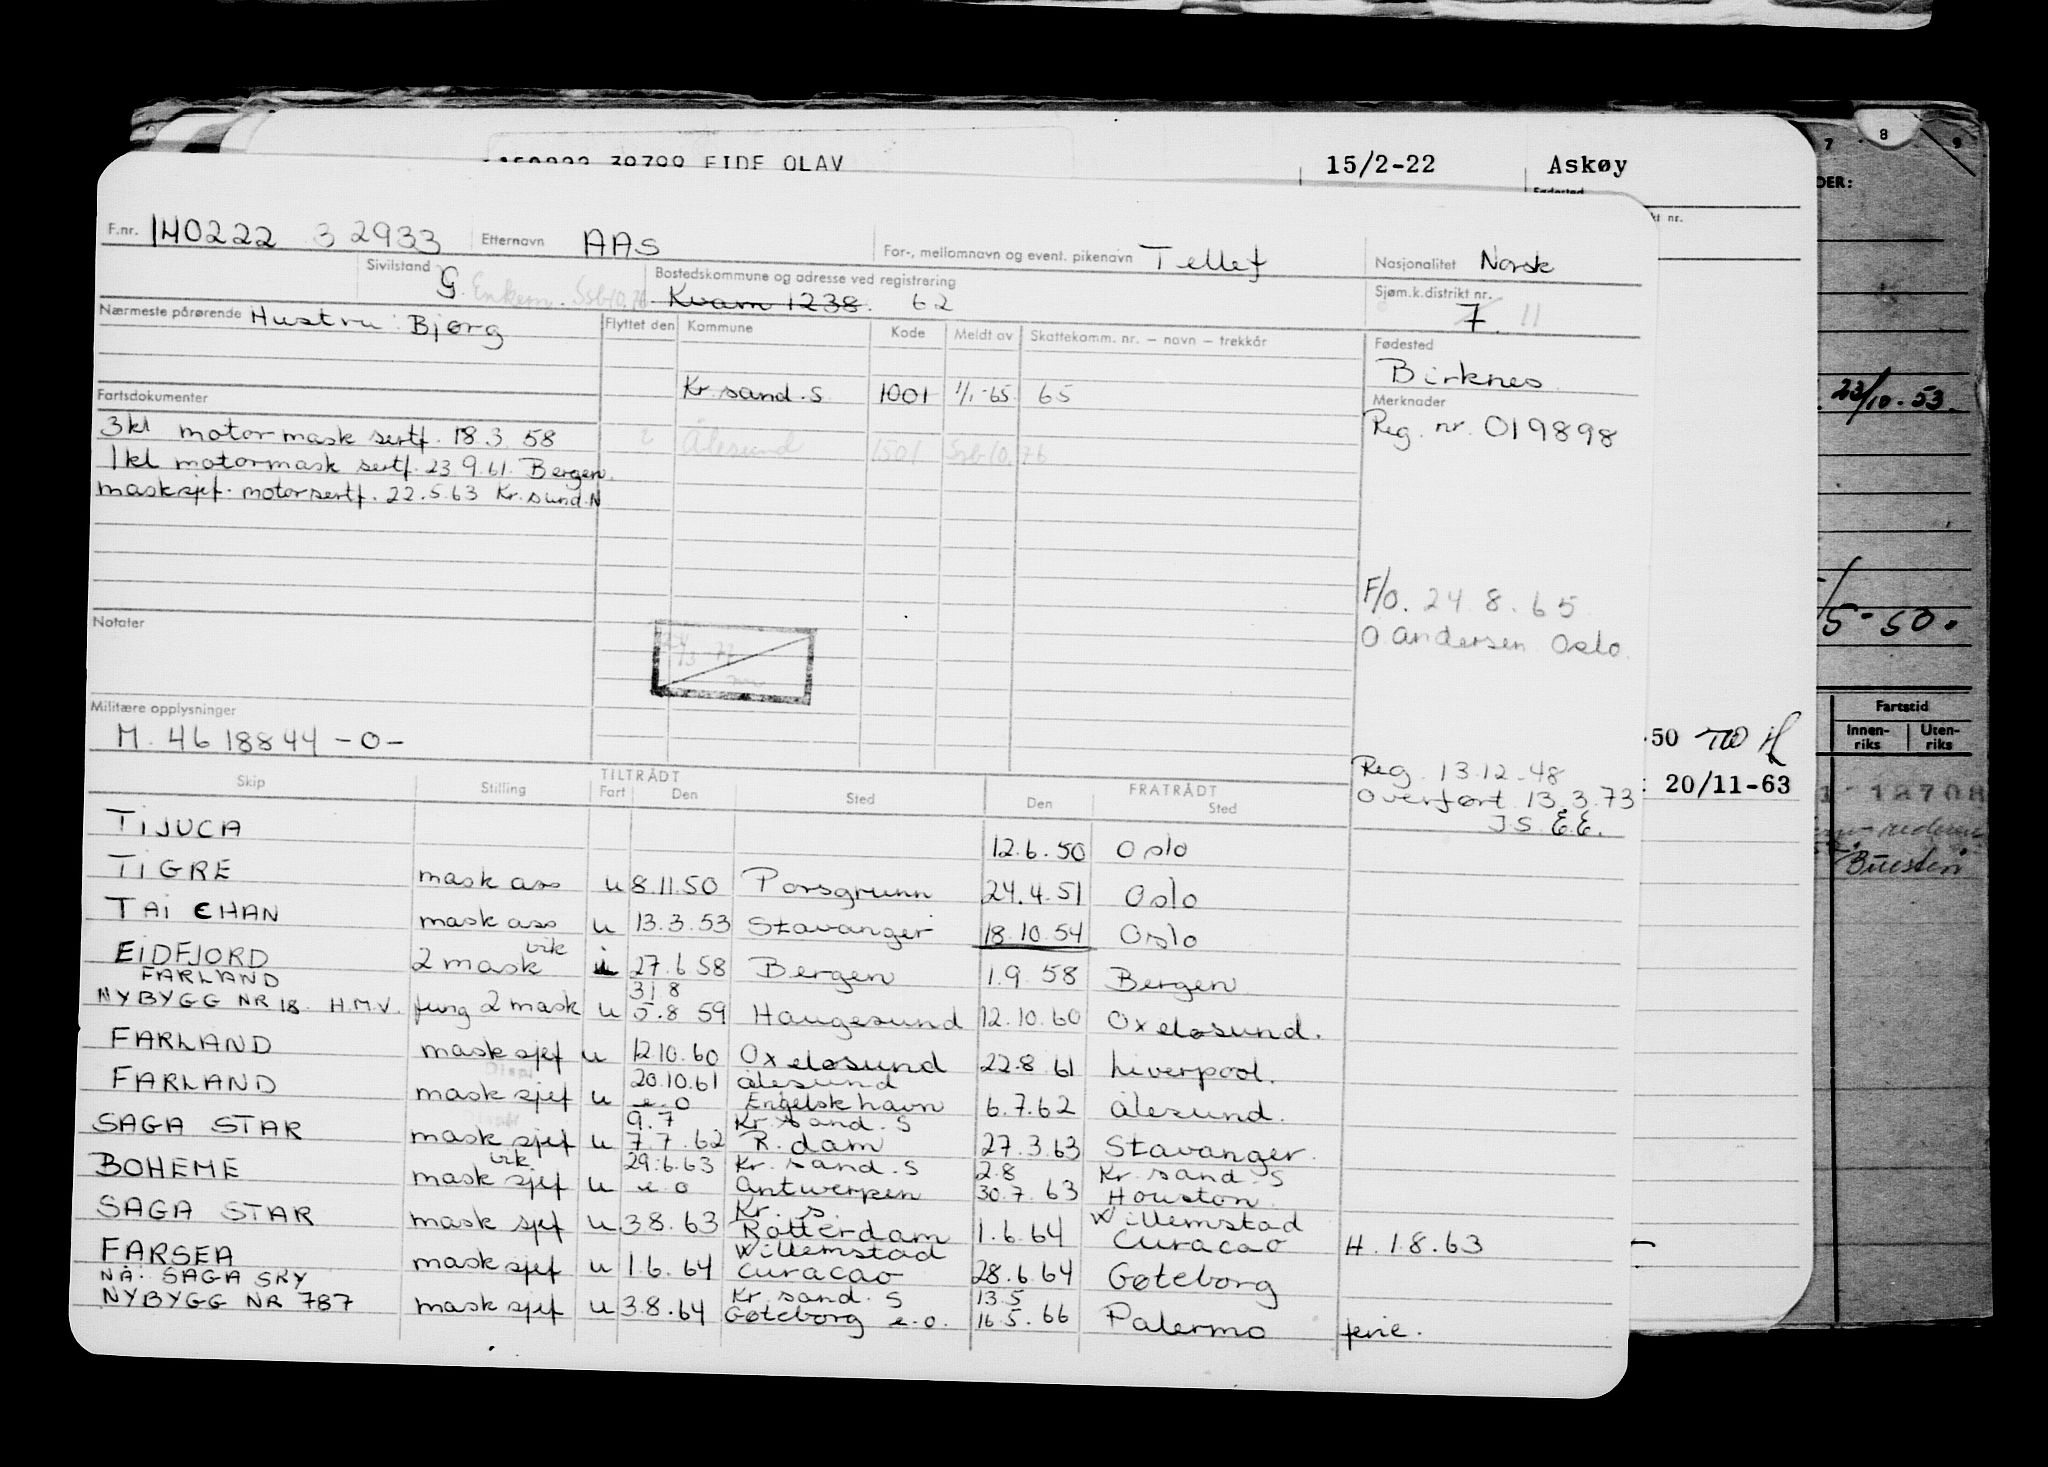 8
7 9
39799 EIDE OLAV 15/2-22 Askøy
DER:
F.nr. 140222 32933 Etternavn AAS For-, mellomnavn og event. pikenavn Tellef Nasjonalitet Norsk
Sivilstand G. Enkem. Ssb10.76 Bostedskommune og adresse ved registrering Kvam 1238. 62 Sjøm.k.distrikt nr. 7 11
Nærmeste pårørende Hustru: Bjørg Flyttet den Kommune Kode Meldt av Skattekomm. nr. – navn – trekkår Fødested
Birknes
Kr.sand.S 1001 1/1-65 65
Fartsdokumenter Merknader
3kl motormask sertf. 18.3.58 Reg. nr. 019898
Ålesund 1501 Ssb10.76
1kl motormask sertf. 23.9.61. Bergen.
masksjef. motorsertf. 22.5.63 Kr.sund.N
23/10-53.
F/O. 24.8.65
O Andersen Oslo.
/5-50.
Notater
Militære opplysninger
M. 4618844 -0-
Fartstid
Innen-riks Uten-riks
-50
Reg. 13.12.48
Overført 13.3.73
J S. E.E.
20/11-63
Skip Stilling TILTRÅDT Fart Den Sted FRATRÅDT Den Sted
TIJUCA 12.6.50 Oslo
TIGRE mask ass u 8.11.50 Porsgrunn 24.4.51 Oslo
TAI CHAN mask ass u 13.3.53 Stavanger 18.10.54 Oslo
EIDFJORD 2 mask vik i 27.6.58 Bergen 1.9.58 Bergen
FARLAND 31.8
NYBYGG NR 18. H.M.V. fung 2 mask u 5.8.59 Haugesund 12.10.60 Oxeløsund.
FARLAND mask sjef u 12.10.60 Oxeløsund 22.8.61 Liverpool.
Disp 20.10.61 Ålesund
FARLAND mask sjef u e.o Engelsk havn 6.7.62 Ålesund.
9.7 Kr.sand.S
SAGA STAR mask sjef u 7.7.62 R.dam 27.3.63 Stavanger.
vik 29.6.63 Kr.sand.S 2.8 Kr sand.S
BOHEME mask sjef u e.o Antwerpen 30.7.63 Houston.
Kr. s. Willemstad
SAGA STAR mask sjef u 3.8.63 Rotterdam 1.6.64 Curacao H. 1.8.63
Willemstad
FARSEA mask sjef u 1.6.64 Curacao 28.6.64 Gøteborg
NÅ. SAGA SKY Kr.sand.S 13.5
NYBYGG NR 787 mask sjef u 3.8.64 Gøteborg e.o. 16.5.66 Palermo ferie.